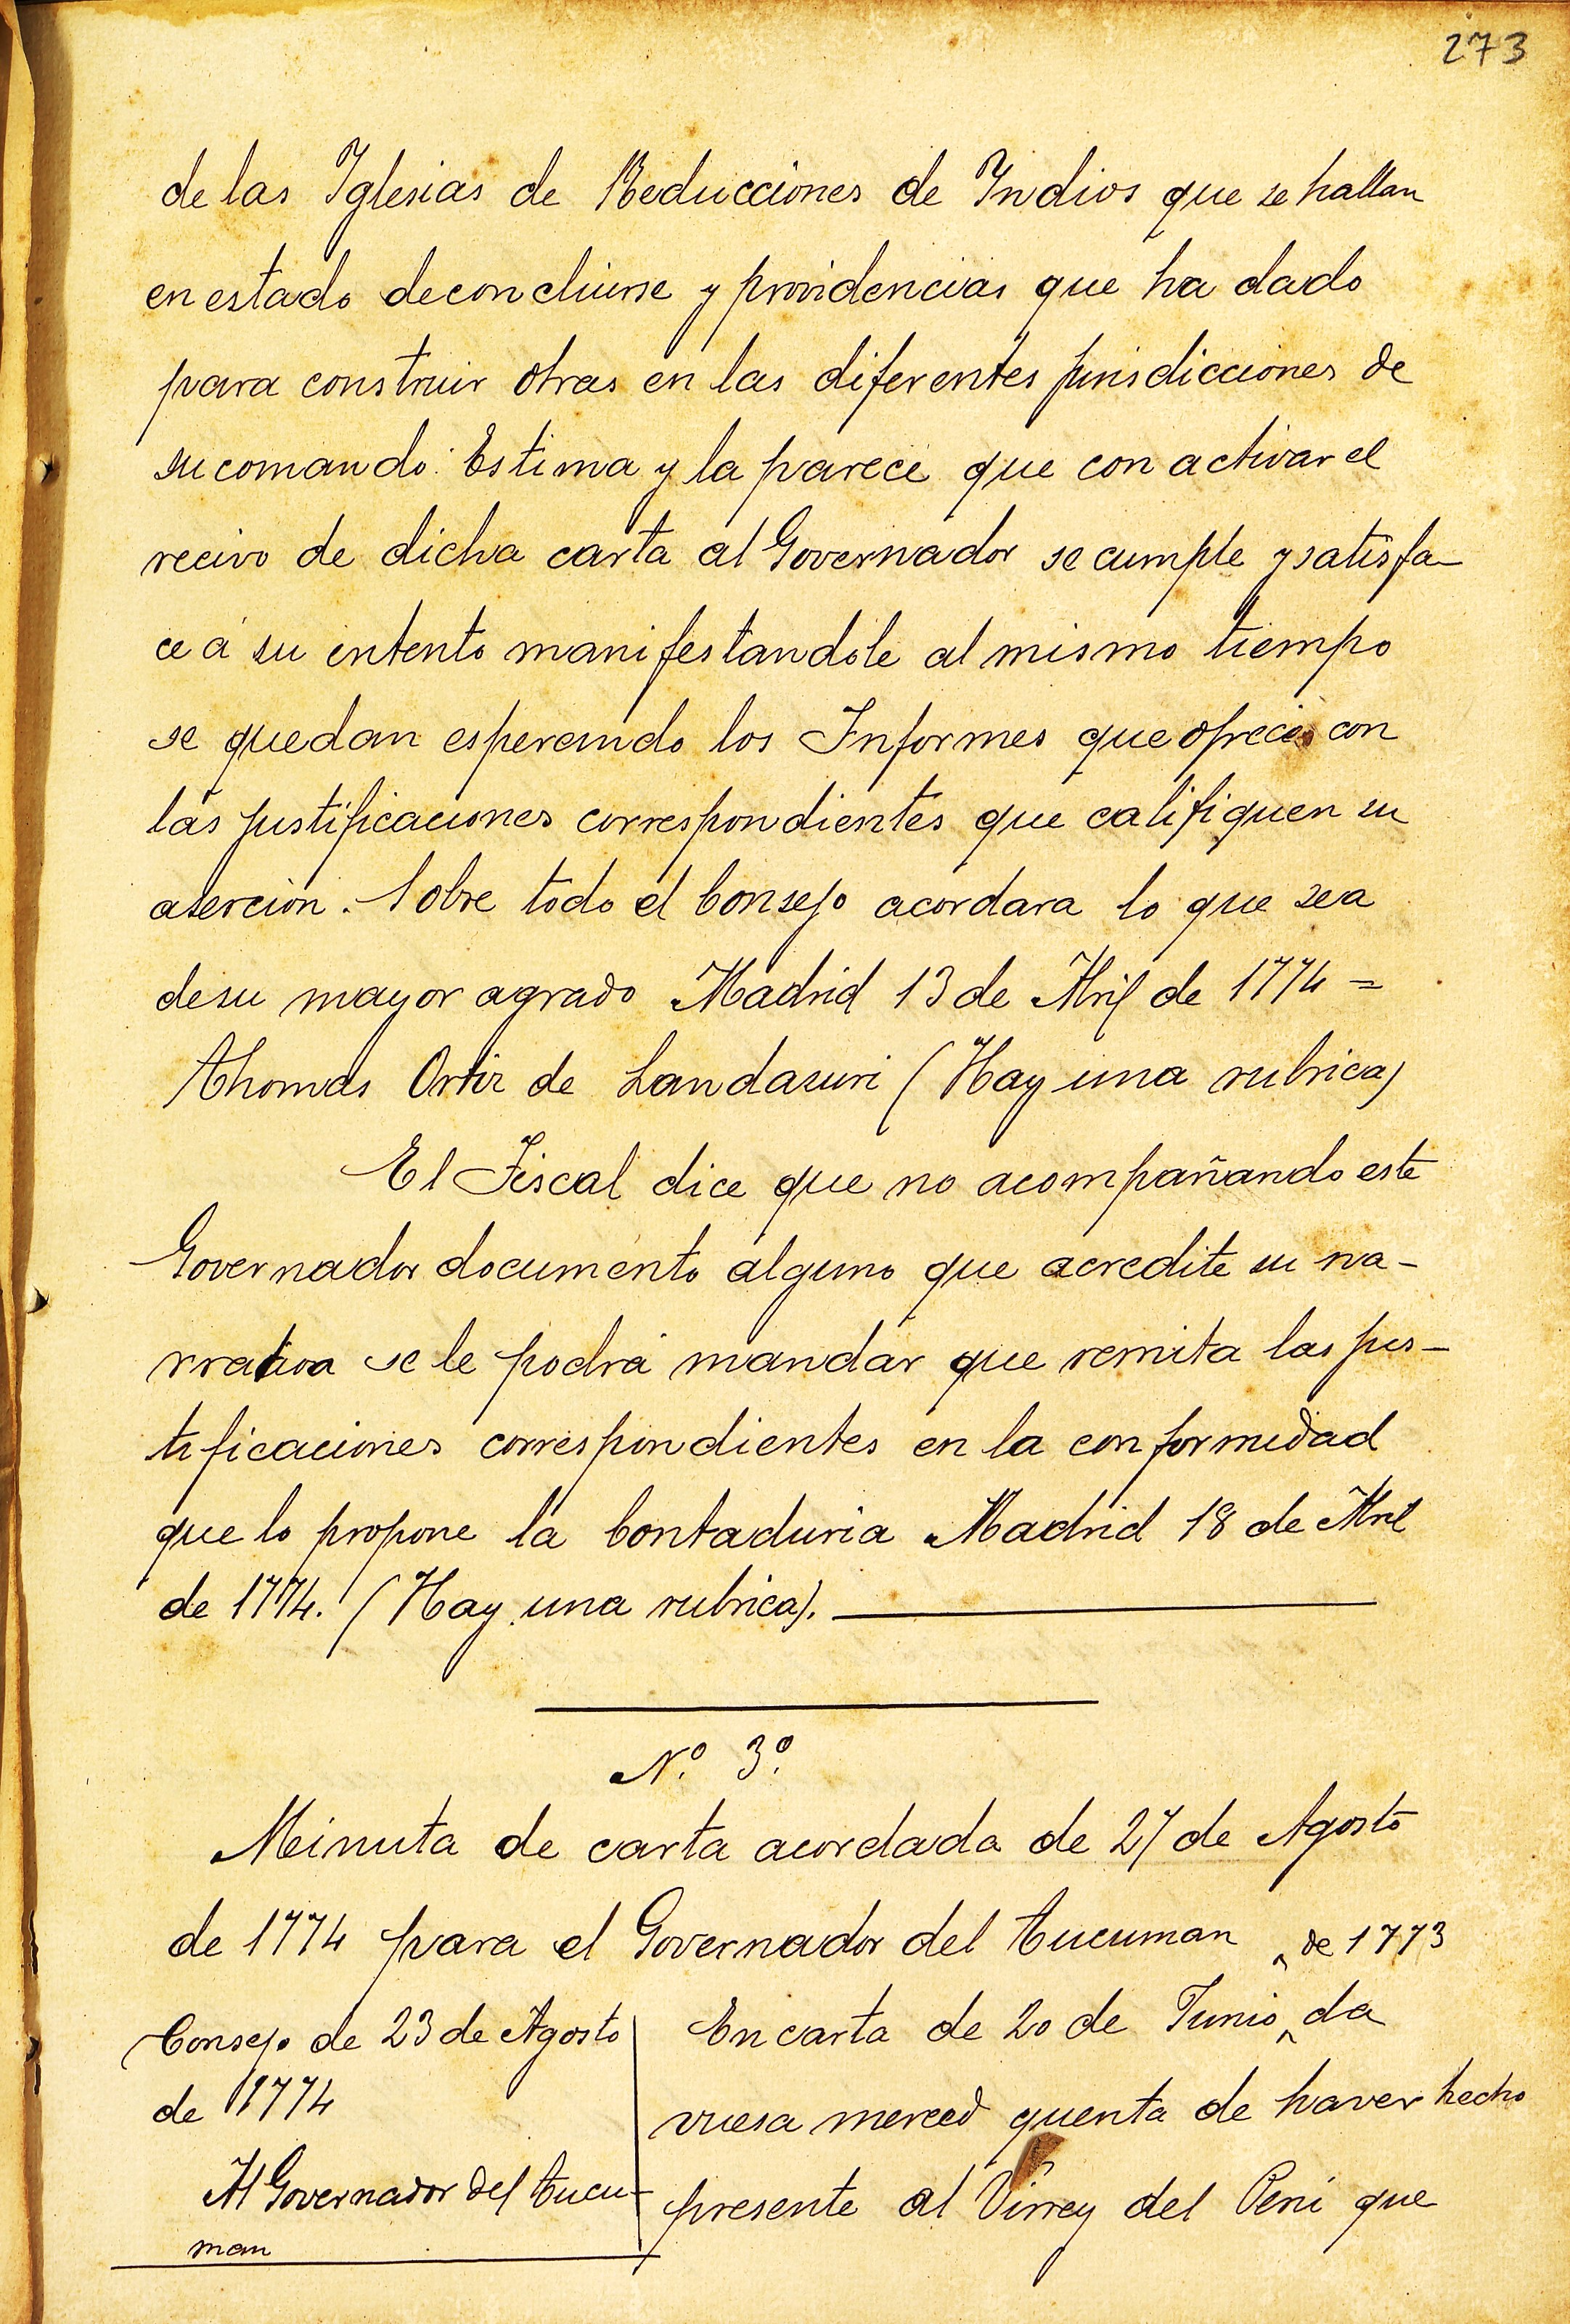 273
de las Iglesias de Reducciones de Indios que se hallan
en estado de concluirse y providencias que ha dado
para construir otras en las diferentes jurisdicciones de
su comando: Estima y la parece que con activar el
recivo de dicha carta al Governador se cumple y satisfa-
ce á su intento manifestandole al mismo tiempo
se quedan esperando los Informes que ofrece con
las justificaciones correspondientes que califiquen su
asercion. Sobre todo el Consejo acordara lo que sea
de su mayor agrado Madrid 13 de Abril de 1774 =
Thomas Ortiz de Landazuri (Hay una rubrica)
El Fiscal dice que no acompañando este
Governador documento alguno que acredite su na-
rrativa se le podrá mandar que remita las jus-
tificaciones correspondientes en la conformidad
que lo propone la Contaduria Madrid 18 de Abril
de 1774. (Hay una rubrica).
N.º 3.º
Minuta de carta acordada de 27 de Agosto
de 1774 para el Governador del Tucuman
Consejo de 23 de Agosto
de 1774
Al Governador del Tucu-
man
^ de 1773
En carta de 20 de Junio ^ da
vuesa merced quenta de haver hecho
presente al Virrey del Perú que